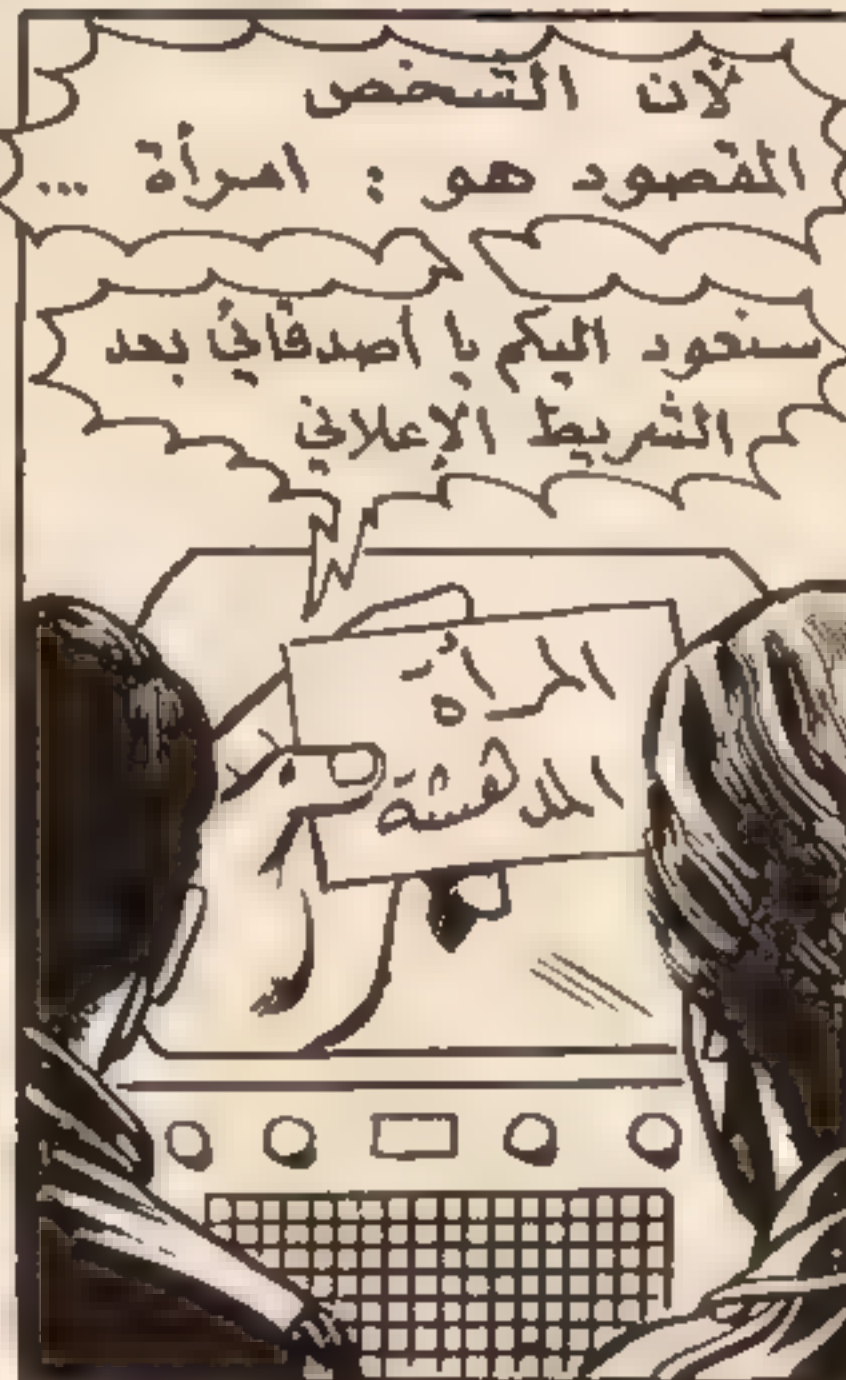 لأن الشخص
المقصود هو : امرأة ...
سنعود اليكم يا أصدقائي بعد
الشريط الإعلاني
المرأة
المدهشة